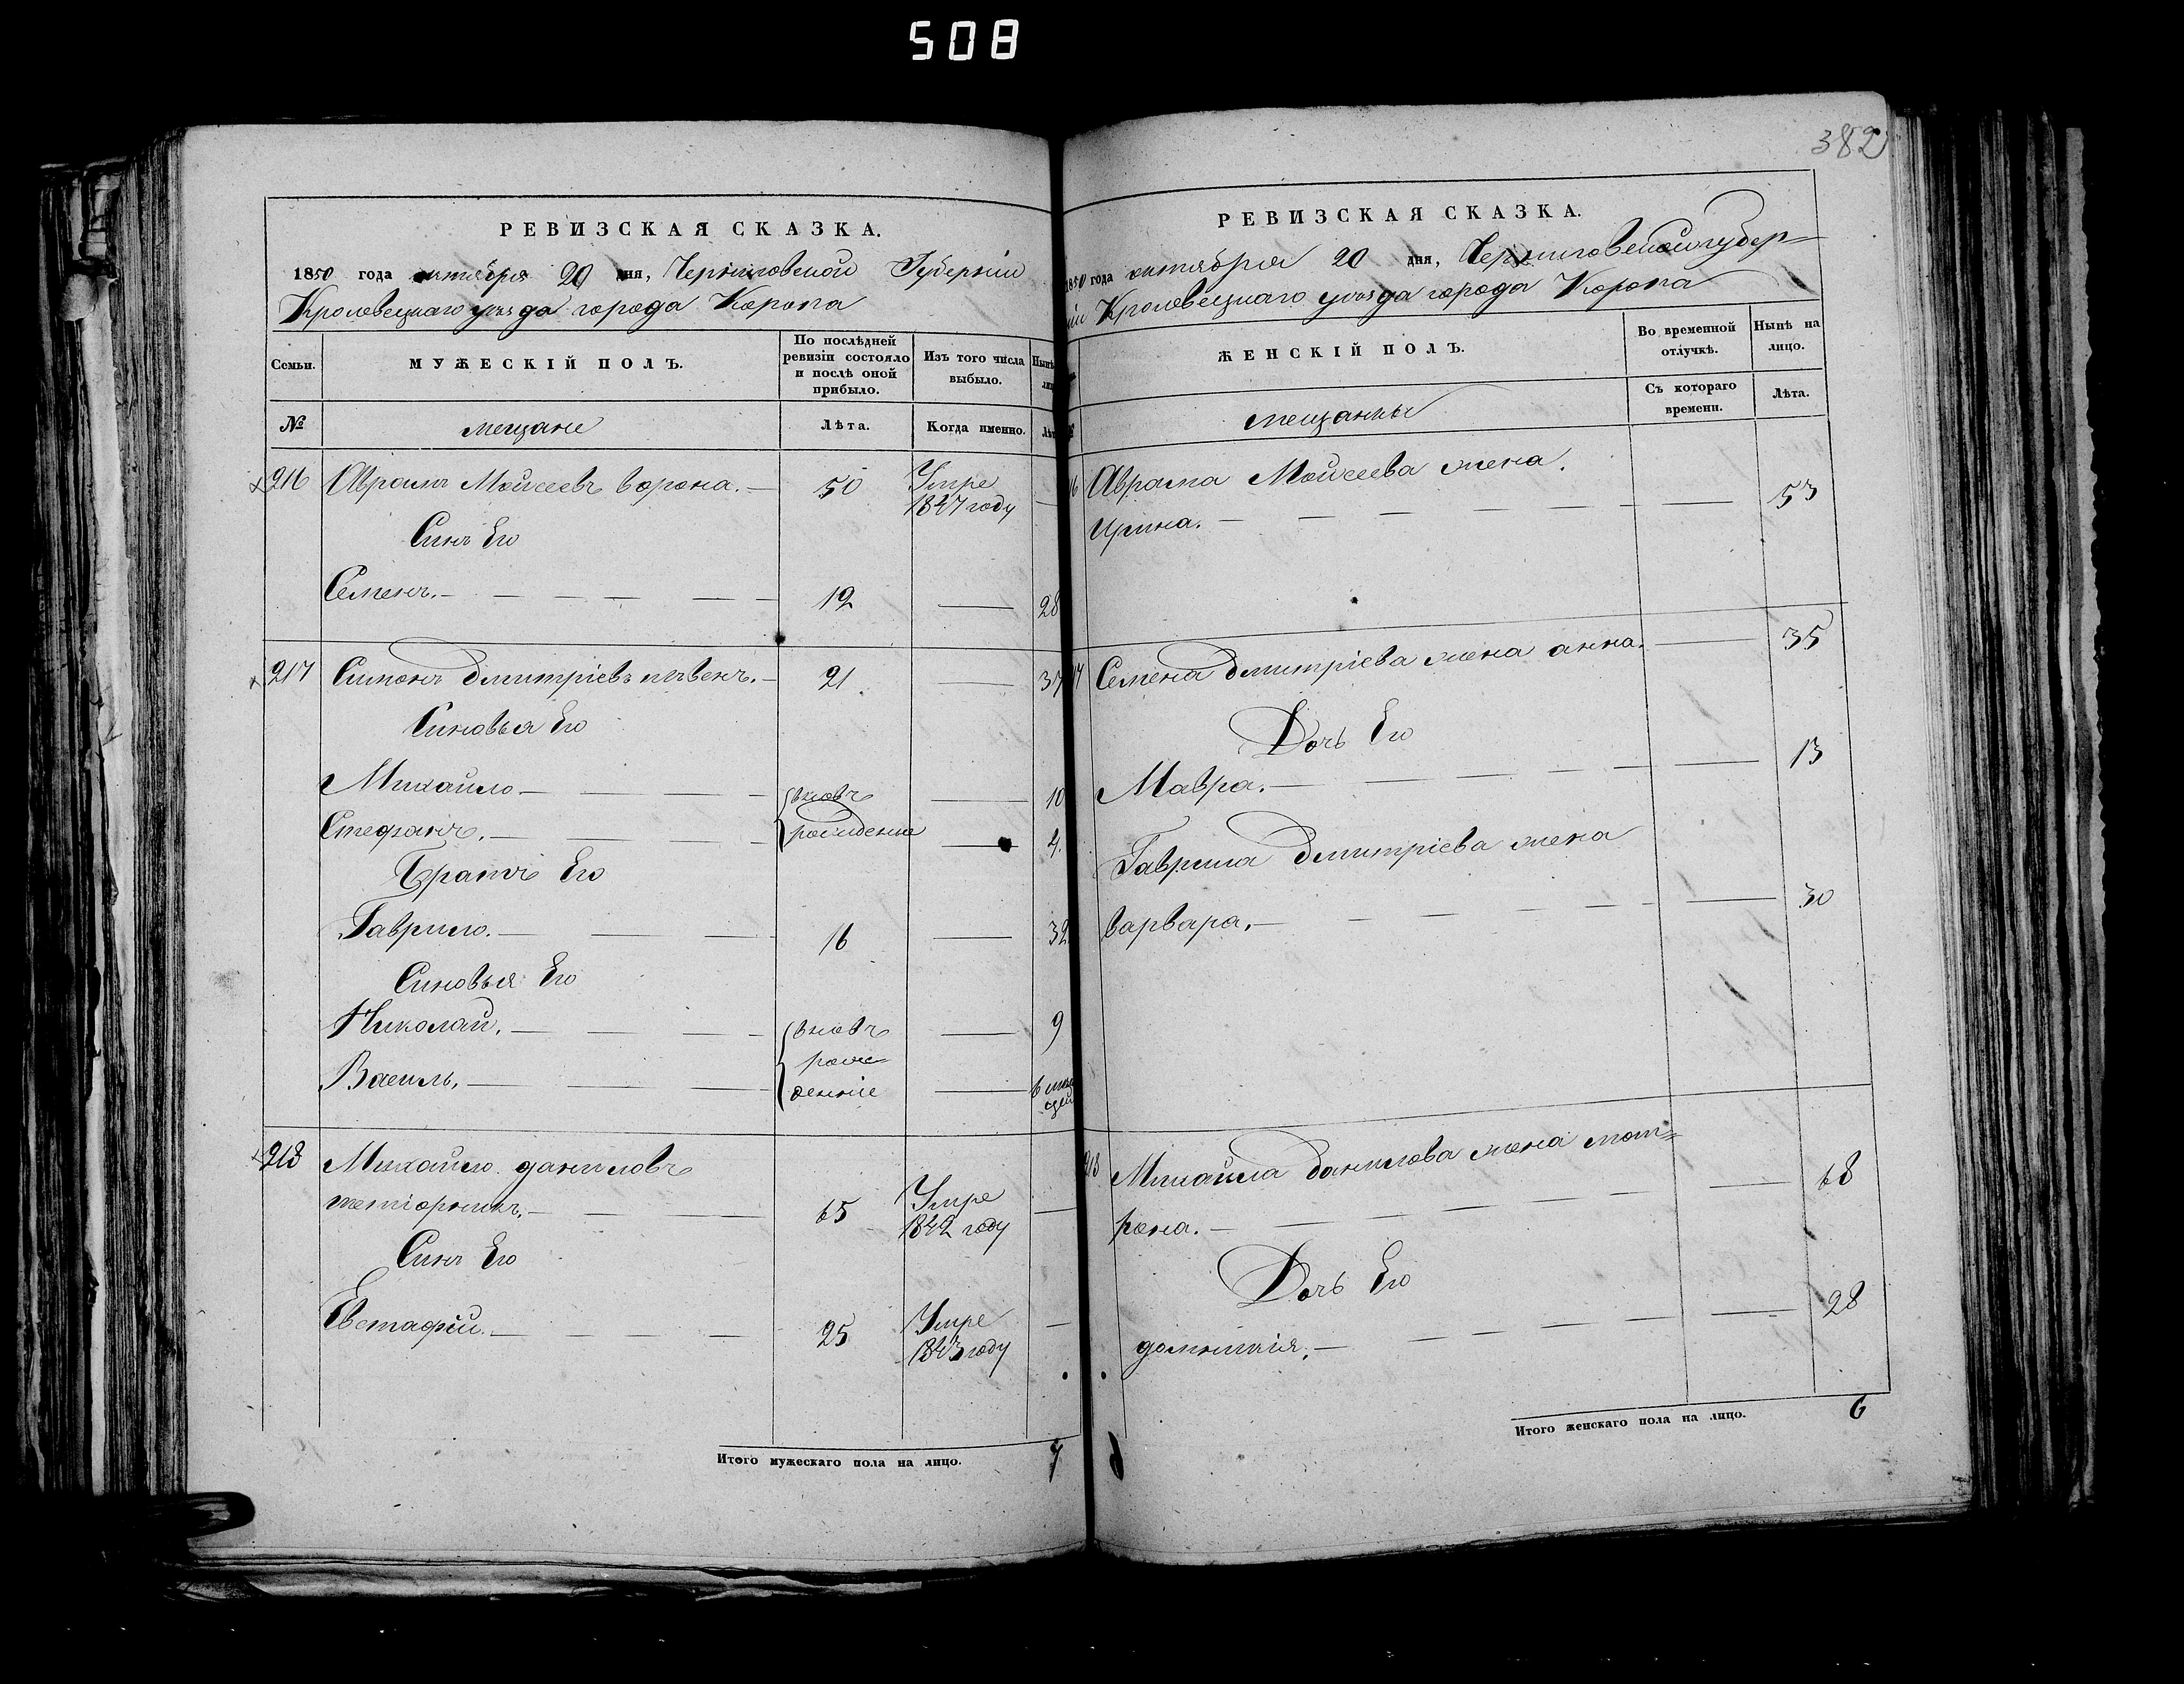 508
382
РЕВИЗСКАЯ СКАЗКА.
1850 года октября 20 дня, Черниговской Губерніи
Кролевецкаго уѣзда города Коропа
Семьи.
МУЖЕСКІЙ ПОЛЪ.
По послѣдней ревизіи состояло и послѣ оной прибыло.
Изъ того числа выбыло.
Нынѣ
№
мещане
Лѣта.
Когда именно.
216 Аврамъ Моисеевъ Ворона. — 50 Умре 1847 году —
Синъ Его
Семенъ. — 12 — 28
217 Симонъ Дмитріевъ пѣвенъ. — 21 — 37
Синовья Его
Михайло — вновь — 10
Стефанъ. — рожденние — 4.
Братъ Его
Гаврило. — 16 — 32
Синовья Его
Николай. — вновь — 9
рож
Василь. — денніе — 6 меся
цей
218 Михайло даниловъ
тетіорникъ. — 65 Умре 1842 году —
Синъ Его
Евстафій. — 25 Умре 1843 году —
Итого мужескаго пола на лицо. 7
РЕВИЗСКАЯ СКАЗКА.
1850 года октября 20 дня, Черниговской губер=
ніи Кролевецкаго уѣзда города Коропа
ЖЕНСКІЙ ПОЛЪ.
Во временной отлучкѣ.
Нынѣ на лицо.
Съ котораго времени.
Лѣта.
мещанки
Аврама Моисеева жена.
Ирина. — — 53
Семена Дмитріева жена анна. — 35
Дочь Его
Мавра. — — 13
Гаврила Дмитріева жена
варвара. — — 30
Михайла Данилова жена мот=
рона. — — 68
Дочь Его
домникія. — — 28
Итого женскаго пола на лицо. 6